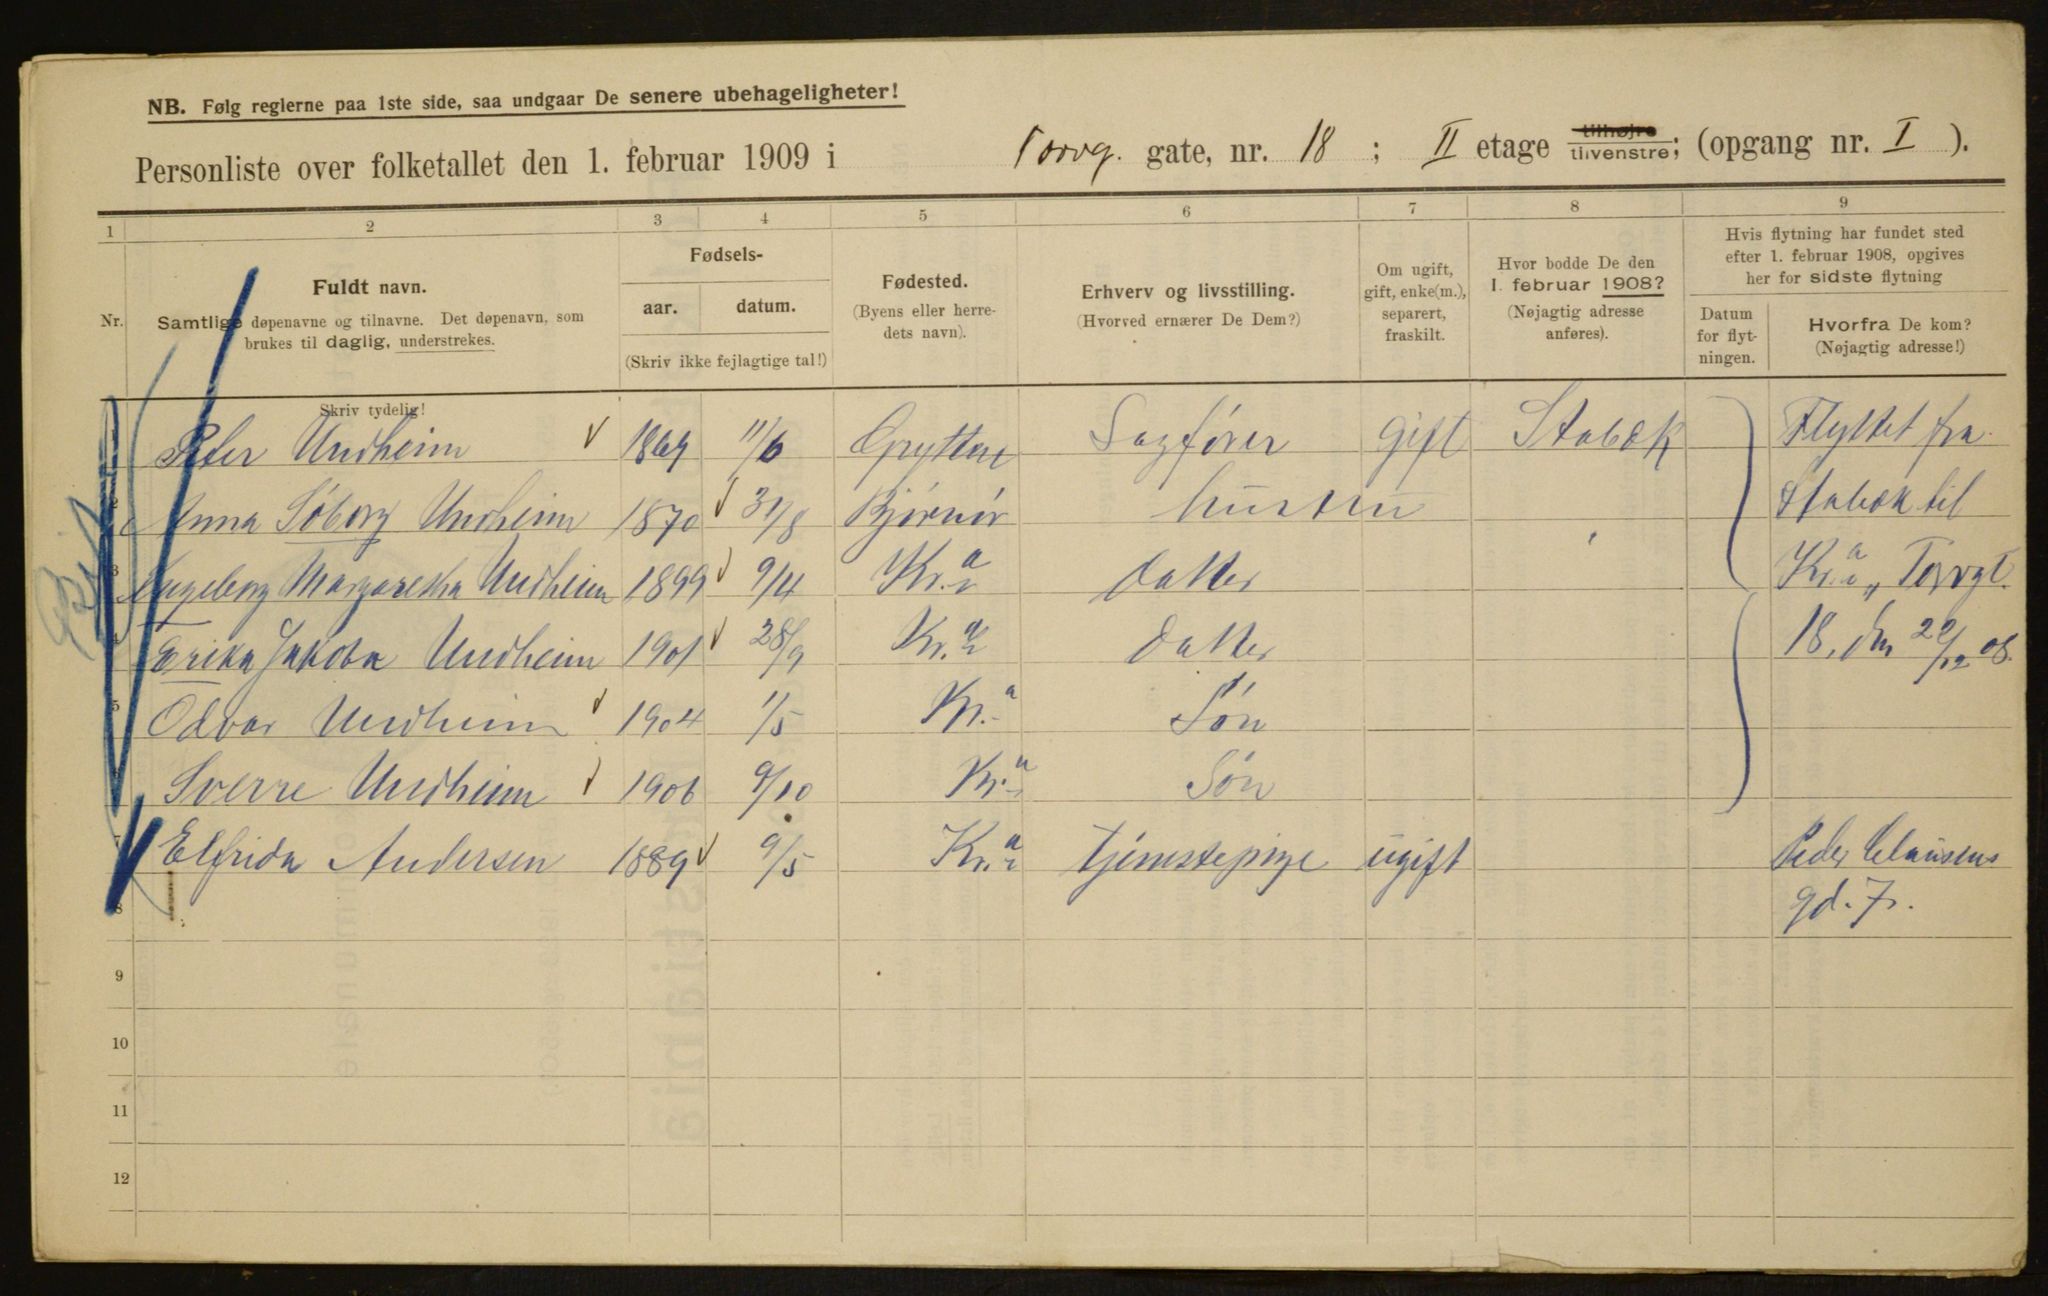 NB. Følg reglerne paa 1ste side, saa undgaar De senere ubehageligheter!
Personliste over folketallet den 1. februar 1909 i Torvg. gate, nr. 18 ; II etage tilhøjre tilvenstre; (opgang nr. I ).
1 2 3 4 5 6 7 8 9
Nr.
Fuldt navn.
Samtlige døpenavne og tilnavne. Det døpenavn, som
brukes til daglig, understrekes.
Skriv tydelig!
Fødsels-
aar. datum.
(Skriv ikke fejlagtige tal!)
Fødested.
(Byens eller herre-
dets navn).
Erhverv og livsstilling.
(Hvorved ernærer De Dem?)
Om ugift,
gift, enke(m.),
separert,
fraskilt.
Hvor bodde De den
1. februar 1908?
(Nøjagtig adresse
anføres).
Hvis flytning har fundet sted
efter 1. februar 1908, opgives
her for sidste flytning
Datum
for flyt-
ningen.
Hvorfra De kom?
(Nøjagtig adresse!)
1 Peter Undheim 1869 11/6 Grytten Sagfører gift Stabæk Flyttet fra
2 Anna Söborg Undheim 1870 31/8 Bjørnør hustru Stabæk til
3 Ingeborg Margaretha Undheim 1899 9/4 Kr.a datter Kr.a, Torvgt.
4 Erika Jakoba Undheim 1901 28/9 Kr.a datter 18, den 20/12 08.
5 Odvar Undheim 1904 1/5 Kr.a Søn
6 Sverre Undheim 1906 9/10 Kr.a Søn
7 Elfrida Andersen 1889 9/5 Kr.a tjenestepige ugift Peder Clausens
8 gd. 7.
9
10
11
12